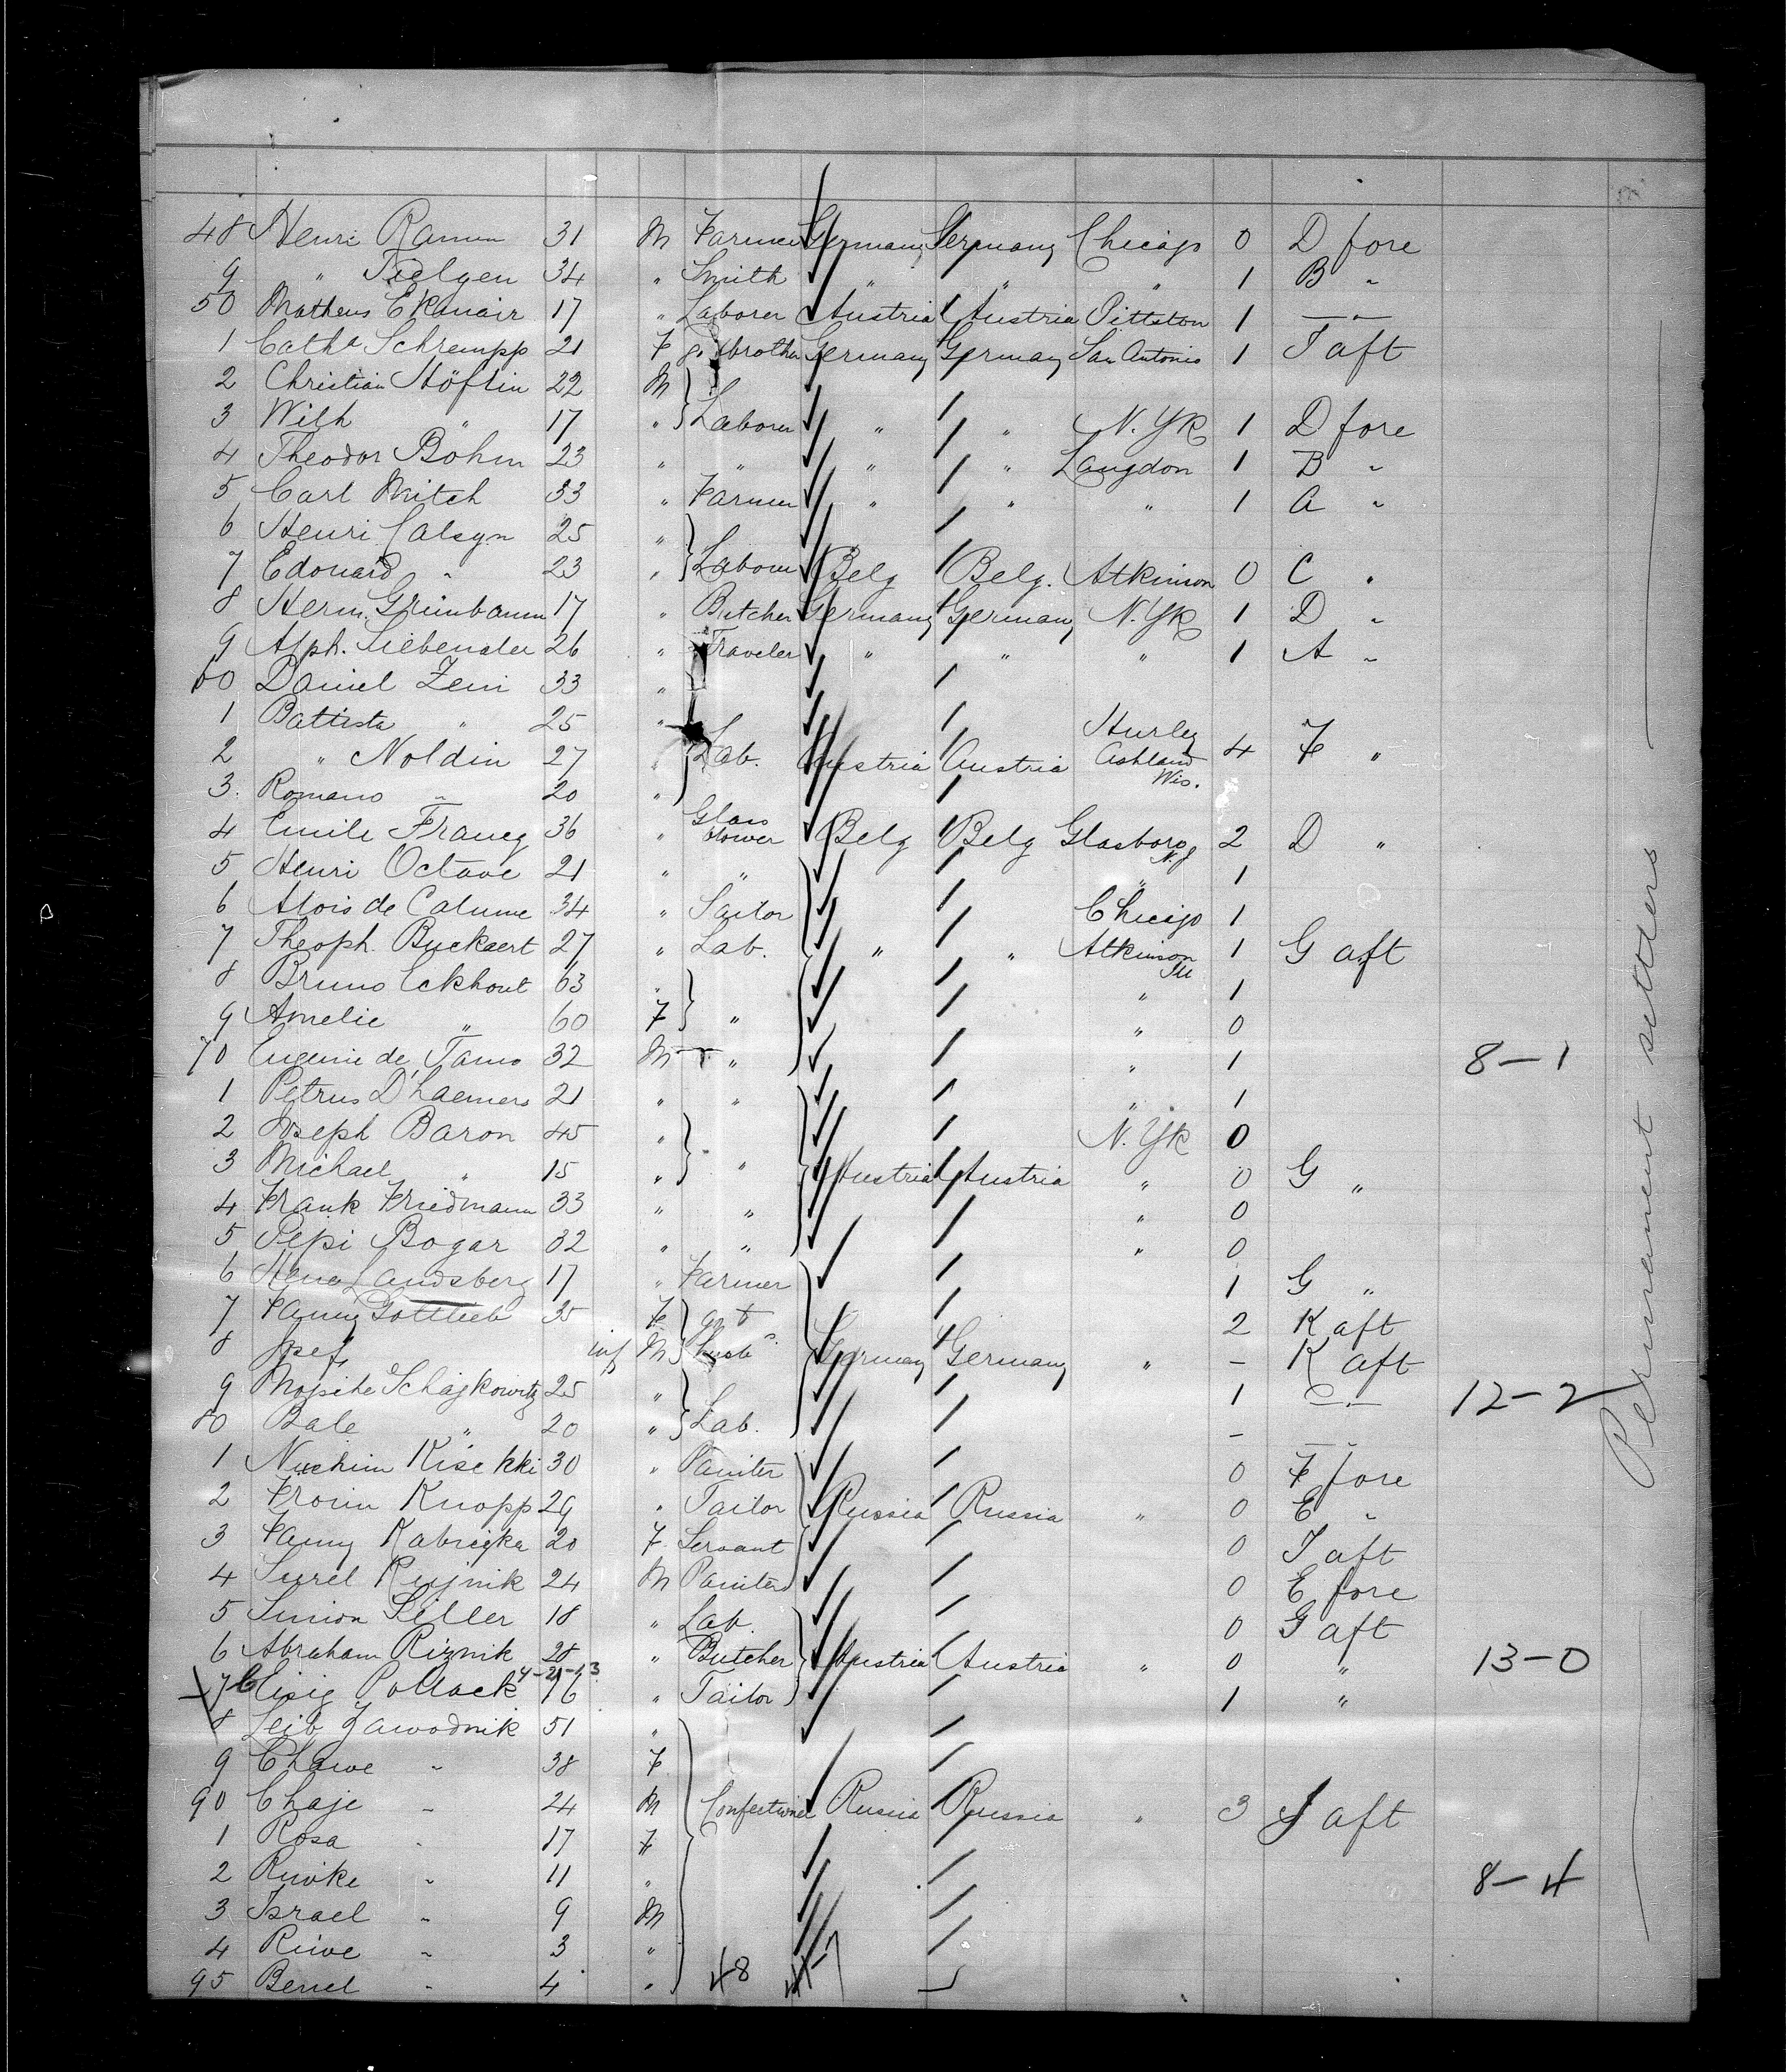 48 Henri Ramm 31 M Farmer Germany Germany Chicago 0 D fore
9 " Tielgen 34 " Smith " " " 1 B "
50 Matheus Ekmair 17 " Laborer Austria Austria Pittston 1 — " —
1 Cath<sup>a</sup> Schrempp 21 F g. t. brother Germany Germany San Antonio 1 J aft
2 Christian Höflin 22 M
3 Wilh " 17 " Laborer " " N. Yk 1 D fore
4 Theodor Bohm 23 " " " " Langdon 1 B "
5 Carl Mitch 33 " Farmer " " " 1 A "
6 Henri Calsyn 25 "
7 Edouard " 23 " Laborer Belg Belg. Atkinson 0 C "
8 Herm. Grünbaum 17 " Butcher Germany Germany N. Yk 1 D "
9 Alph. Liebenaler 26 " Traveler " " " 1 A "
60 Daniel Zeni 33 "
1 Battista " 25 "
2 " Noldin 27 " Lab. Austria Austria Hurley Ashland Wis. 4 F "
3. Romano " 20 "
4 Emile Francq 36 " Glass blower Belg Belg Glasboro N.J 2 D "
5 Henri Octave 21 " " " 1
6 Alois de Calume 34 " Tailor Chicago 1
7 Theoph. Buckaert 27 " Lab. " " Atkinson Ill 1 G aft
8 Bruno Eckhout 63 " " 1
9 Amelie " 60 F " " 0
70 Eugenie de Tams 32 M " " 1 8-1
1 Petrus D'haemers 21 " " " 1
2 Joseph Baron 45 " N. Yk 0
3 Michael " 15 " " Austria Austria " 0 G "
4 Frank Friedmann 33 " " " 0
5 Pepi Bogar 32 " " " 0
6 Landsberg 17 " Farmer 1 G "
7 Fanny Gottlieb 35 F g. t 2 K aft
8 Josef inf M husb Germany Germany " - K aft
9 Mojsche Schajkowitz 25 " 1 — " — 12-2
80 Bale " 20 " Lab. - — " —
1 Nuchim Kisekki 30 " Painter 0 F fore
2 Froim Knopp 29 " Tailor Russia Russia " 0 E "
3 Fanny Kabrizka 20 F Servant 0 J aft
4 Surel Rujnik 24 M Painter 0 E fore
5 Simon Siller 18 " Lab. 0 G aft
6 Abraham Riznik 28 " Butcher Austria Austria " 0 " 13-0
7 Eisig Pollack 16 " Tailor 1 "
8 Leib Zawodnik 51 "
9 Chawe " 38 F
90 Chaje " 24 M Confectioner Russia Russia " 3 J aft
1 Rosa " 17 F
2 Riwke " 11 " 8-4
3 Israel " 9 M
4 Riwe " 3 "
95 Berrel " 4 " 48
Permanent settlers